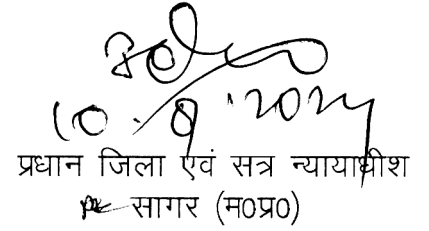 10.9.2024
प्रधान जिला एवं सत्र न्यायाधीश
सागर (म०प्र०)